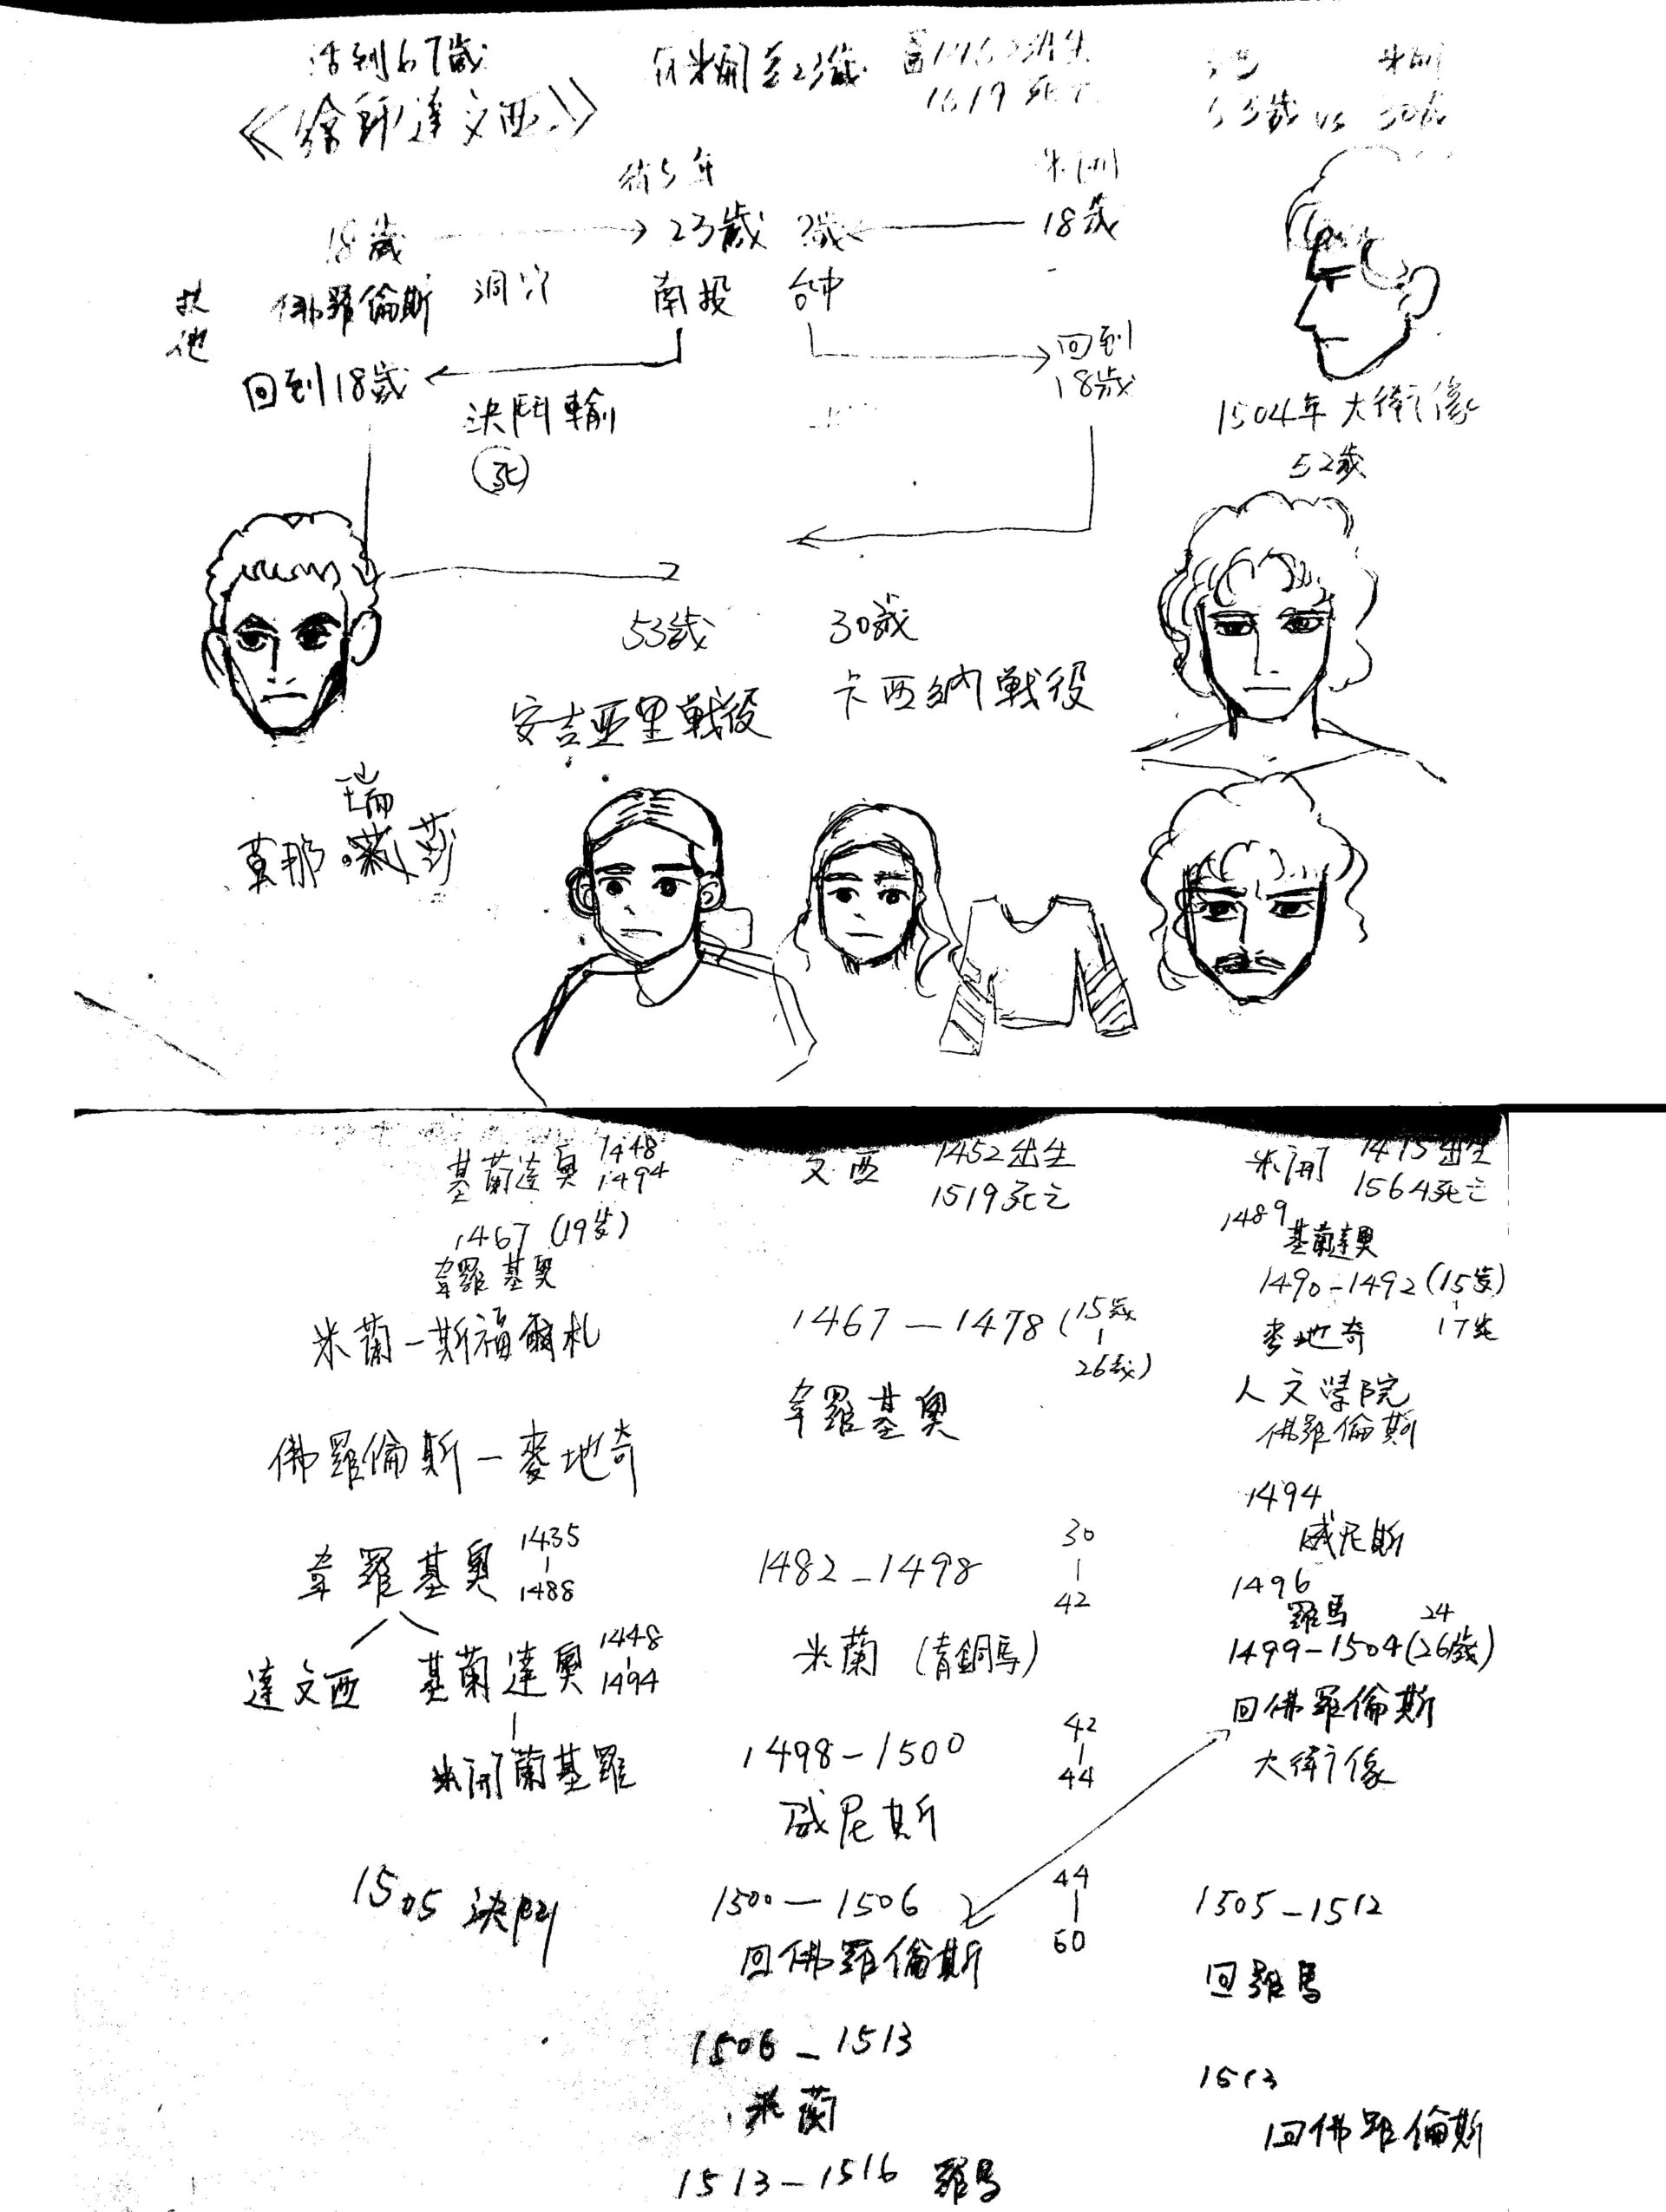 活到67歲
《繪師達文西》
1519死亡
53歲 vs 30歲
待5年
米開
18歲
23歲
?歲
18歲
佛羅倫斯
洞穴
南投
台中
回到18歲
回到
18歲
決鬥輸
死
1504年大衛像
52歲
53歲
30歲
安吉亞里戰役
卡西納戰役
瑞
莫那・ 莎
基蘭達奧 1448
1494
1467 (19歲)
韋羅基奧
米蘭－斯福爾札
佛羅倫斯－麥地奇
韋羅基奧 1435
|
1488
達文西 基蘭達奧 1448
|
1494
米開蘭基羅
1505 決鬥
文西 1452出生
1519死亡
1467—1478 (15歲
|
26歲)
韋羅基奧
1482—1498 30
|
42
米蘭 (青銅馬)
1498-1500 42
|
44
威尼斯
1500—1506 44
|
60
回佛羅倫斯
1506—1513
米蘭
1513-1516 羅馬
米開 1475出生
1564死亡
1489
基蘭達奧
1490-1492 (15歲)
|
17歲
麥地奇
人文學院
佛羅倫斯
1494
威尼斯
1496
羅馬 24
1499-1504 (26歲)
回佛羅倫斯
大衛像
1505-1512
回羅馬
1513
回佛羅倫斯